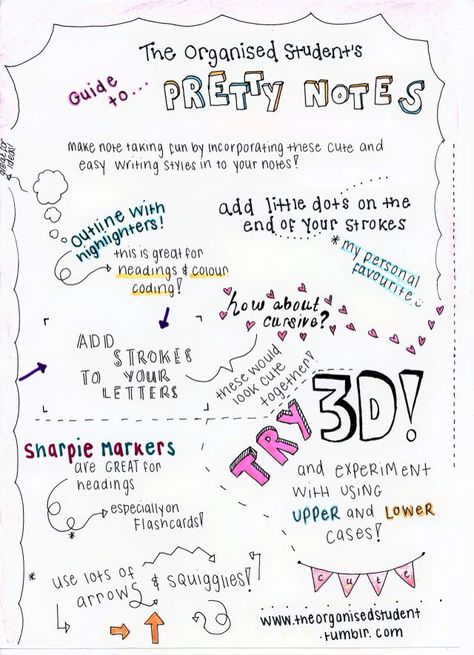 The Organised Student's
Guide to...
PRETTY NOTES
make note taking fun by incorporating these cute and
easy writing styles in to your notes!
great for
ideas!
Outline with
highlighters!
this is great for
headings & colour
coding!
add little dots on the
end of your strokes
*my personal
favourite
how about
cursive?
ADD
STROKES
TO YOUR
LETTERS
these would
look cute
together!
TRY 3D!
and experiment
with using
UPPER and LOWER
cases!
Sharpie Markers
are GREAT for
headings
especially on
Flashcards!
* use lots of
arrows & squiggles!
cute
www.theorganisedstudent
.tumblr.com